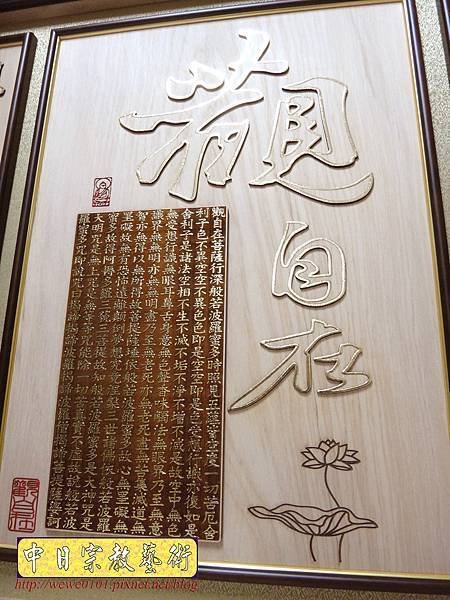 觀自在
觀自在菩薩行深般若波羅蜜多時照見五蘊皆空度一切苦厄舍
利子色不異空空不異色色即是空空即是色受想行識亦復如是
舍利子是諸法空相不生不滅不垢不淨不增不減是故空中無色
無受想行識無眼耳鼻舌身意無色聲香味觸法無眼界乃至無意
識界無無明亦無無明盡乃至無老死亦無老死盡無苦集滅道無
智亦無得以無所得故菩提薩埵依般若波羅蜜多故心無罣礙無
罣礙故無有恐怖遠離顛倒夢想究竟涅槃三世諸佛依般若波羅
蜜多故得阿耨多羅三藐三菩提故知般若波羅蜜多是大神咒是
大明咒是無上咒是無等等咒能除一切苦真實不虛故說般若波
羅蜜多咒即說咒曰揭諦揭諦波羅揭諦波羅僧揭諦菩提薩婆訶
觀自在
中日宗教藝術
http://wewe0101.pixnet.net/blog